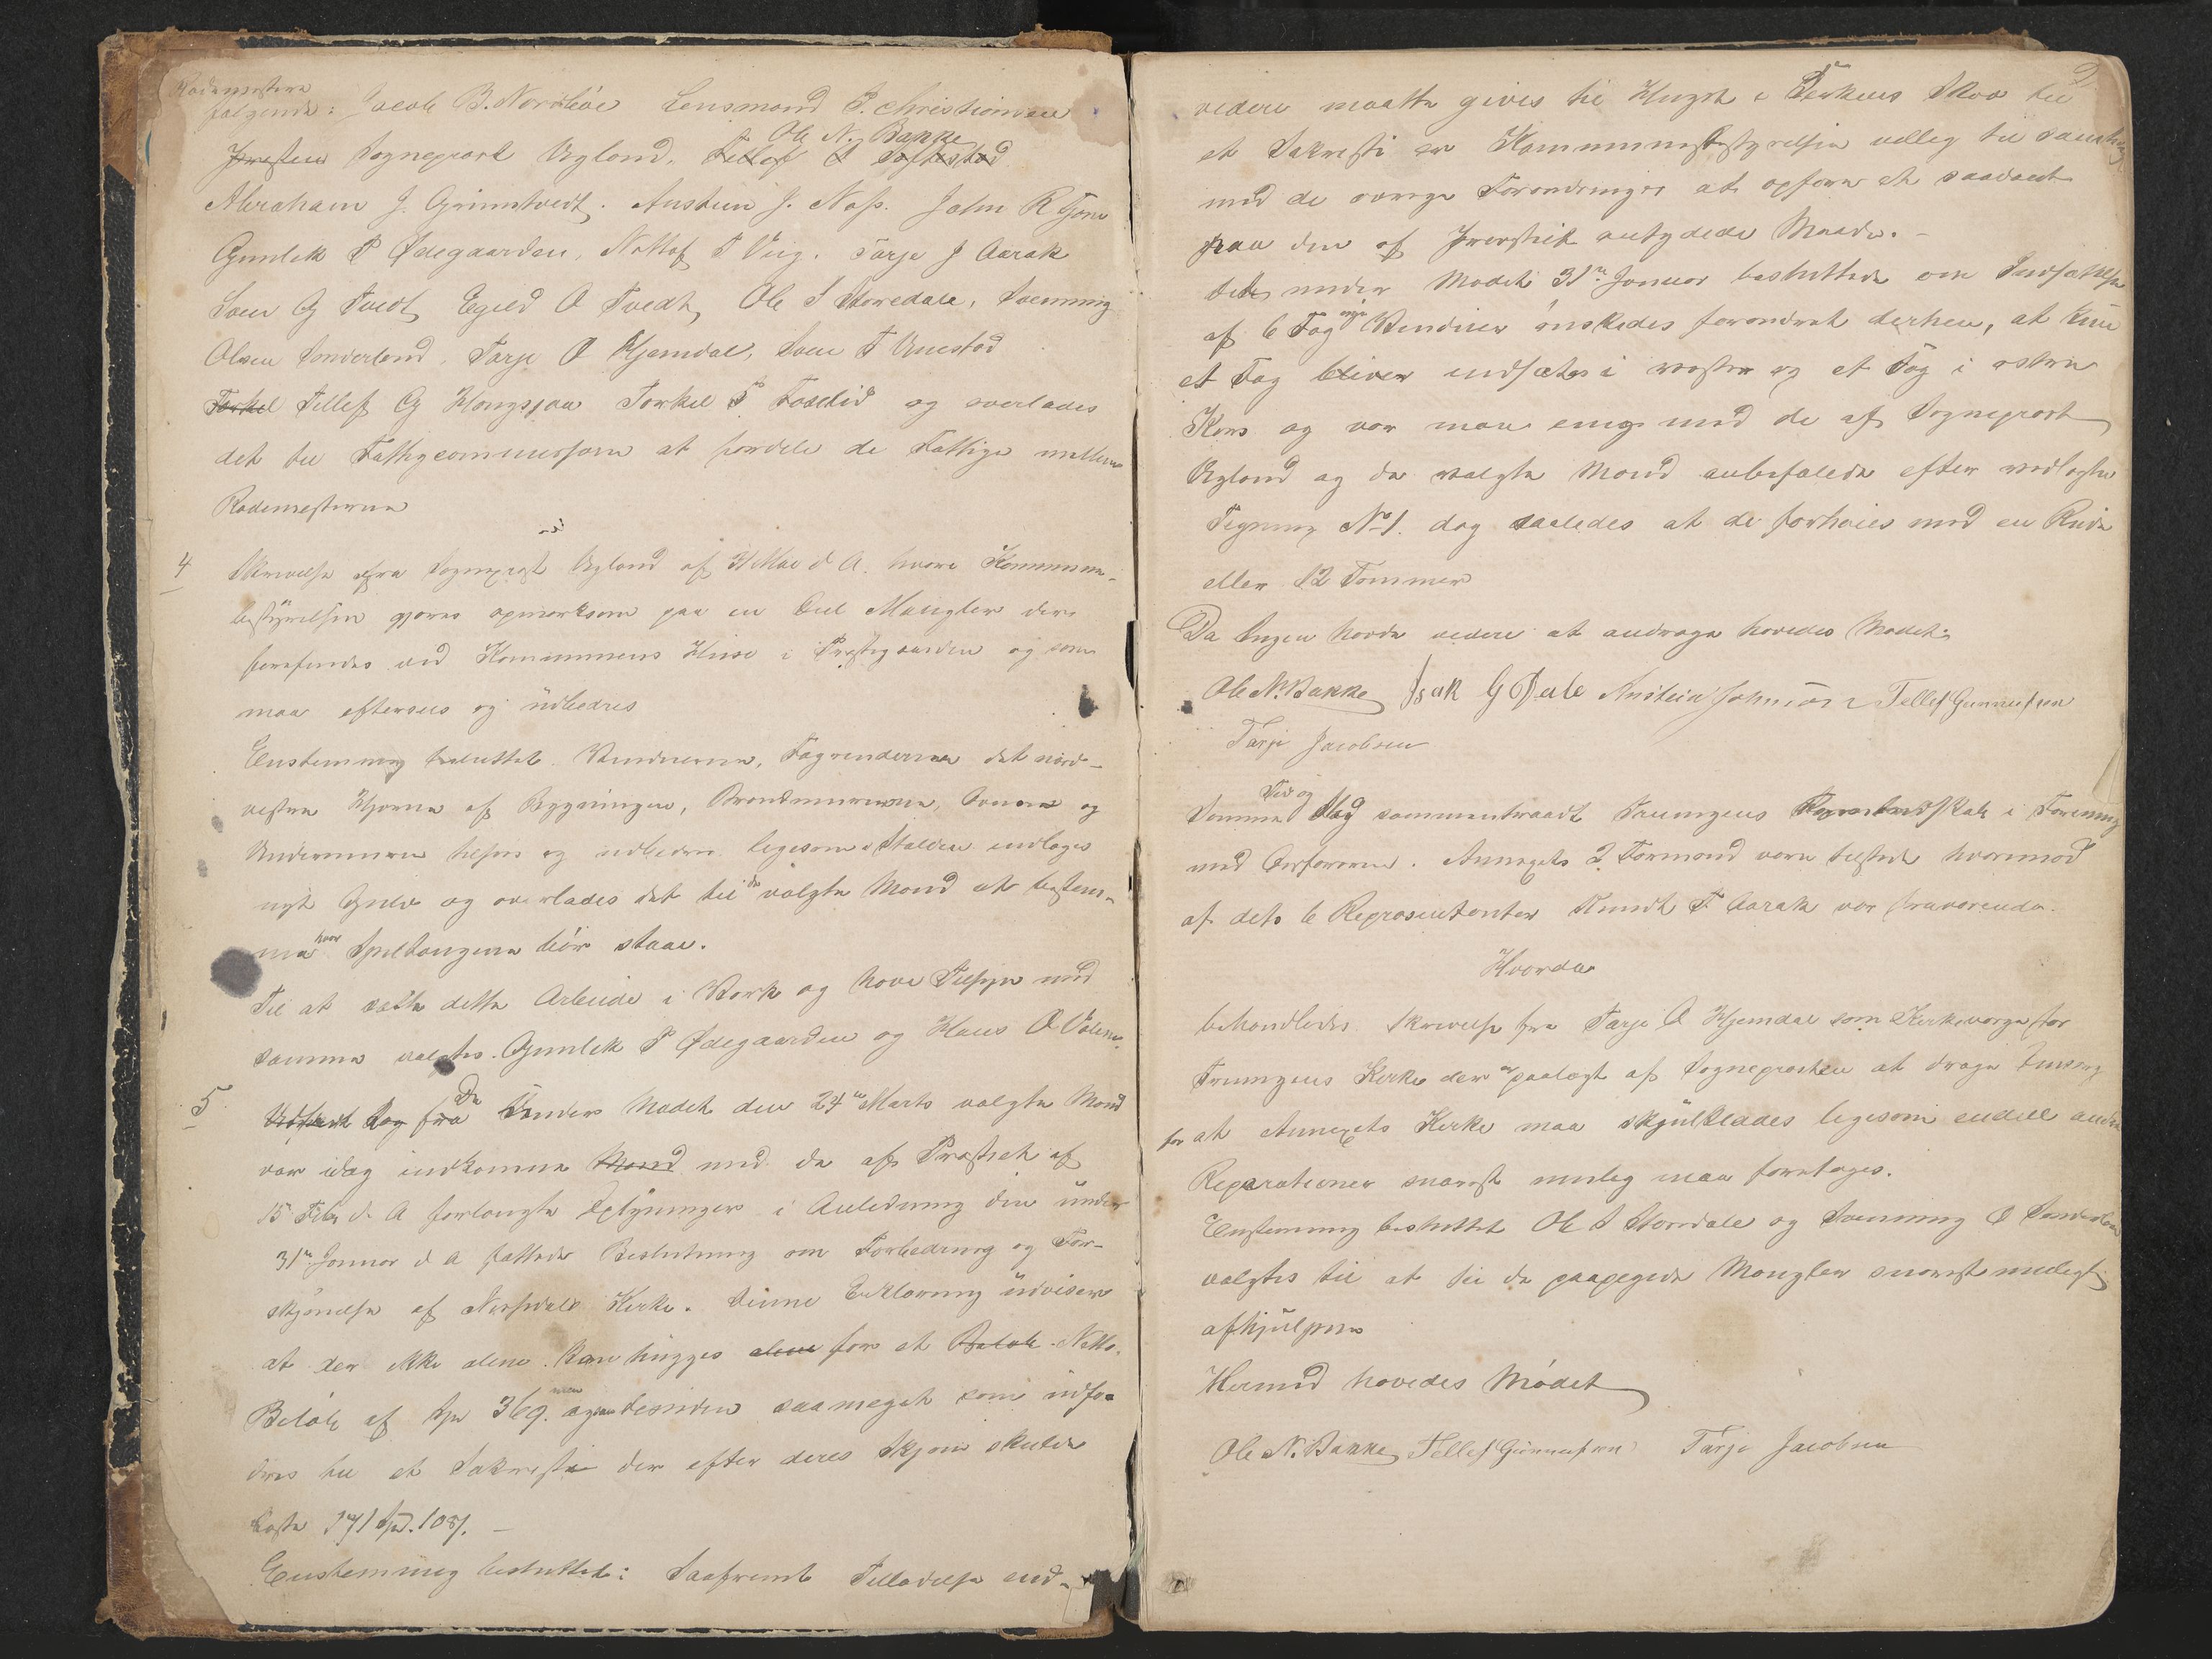 Rodemestere
følgende: Jacob B. Nordbøe Lensmand P. Christiansen
Ole N. Bakke
Præsten Sogneprest Ugland. Tellef
Abraham J. Grimstvedt. Anstein J. Næss. John R Tjøn
Gunlek P Ødegaarden, Nottof T Vig. Tarje J Aarak
Soen G Tvedt, Egild O Tvedt, Ole S Storedale, Svenning
Olsen Sønderland, Tarje O Hjemdal, Soen T
Torkel Tellef G Kongsjaa Torkel T Foslid og overlades
det til Fattigcommissjonen at fordele de Fattige mellem
Rodemesterne
4 Skrivelse fra Sogneprest Ugland af Mai d A. hvori Kommune-
bestyrelsen gjøres opmerksom paa en Deel Mangler der
forefindes ved Kommunens Huse i Prestegaarden og som
maa eftersees og udbedres
Enstemmig besluttet. Vinduerne, Tagrenderne det nord-
vestre Hjørne af Bygningen, Brandmurerne, Ovnene og
Undermuren tilsees og udbedres ligesom i Stalden indlæges
nyt Gulv og overlades det til de valgte Mænd at bestem-
me hvor Spiltaugene bør staae.
Til at sætte dette Arbeide i Værk og have Tilsyn med
samme valgtes Gunlek P Ødegaarden og Hans O
5 Da
fra Under Mødet den 24de Marts valgte Mænd
var idag indkomne Mænd med de af Præstiet af
15 Febr d. A forlangte Oplysninger i Anledning den under
31te Januar d A fattede Beslutning om Forbedring og For-
skjønelse af Nissedals Kirke. Denne Erklæring udviser
at der ikke alene kan bygges alene for et Beløb Netto
Beløb af Spd 369. men desuden saameget som udfor-
dres til et Sakresti der efter deres Skjøn skulde
koste 171 Spd. 108 s. —
Enstemmig besluttet: Saafremt Tilladelse end-
2
videre maatte gives til Hugst i Kirkens Skov til
et Sakresti er Kommunebestyrelsen villig til samtidig
med de øvrige Forandringer at opføre et saadant
paa den af Provstiet antydede Maade. —
Det under Mødet 31te Januar besluttede om Indsættelse
af 6 Fag nye Vinduer ønskedes forandret derhen, at kun
et Fag bliver indsat i vestre og et Fag i østre
Kors og var man enig med de af Sogneprest
Ugland og de valgte Mænd anbefalede efter vedlagte
Tegning No 1. dog saaledes at de forhøies med en Rude
eller 12 Tommer
Da Ingen havde videre at andrage hævedes Mødet.
Ole N. Bakke Isak G Dale Anstein Johnsen Tellef Gunnufsen
Tarje Jacobsen
Tid og
Samme Dag sammentraadt Treungens Formandskab i Forening
med Ordføreren. Annexets 2 Formænd vare tilstede hvormod
af dets 6 Repræsentanter Knudt T Aarak var fraværende.
Hvorda
behandledes Skrivelse fra Tarje O Hjemdal som Kirkeværge for
Treungens Kirke der er paalagt af Sognepresten at drage Omsorg
for at Annexets Kirke maa skjulklædes ligesom endeel andre
Reparationer snarest mulig maa foretages.
Enstemmig besluttet Ole S Storedale og Svenning O Sønderland
valgtes til at see de paapegede Mangler snarest muligt
afhjulpne
Hermed hævedes Mødet
Ole N. Bakke Tellef Gunnufsen Tarje Jacobsen